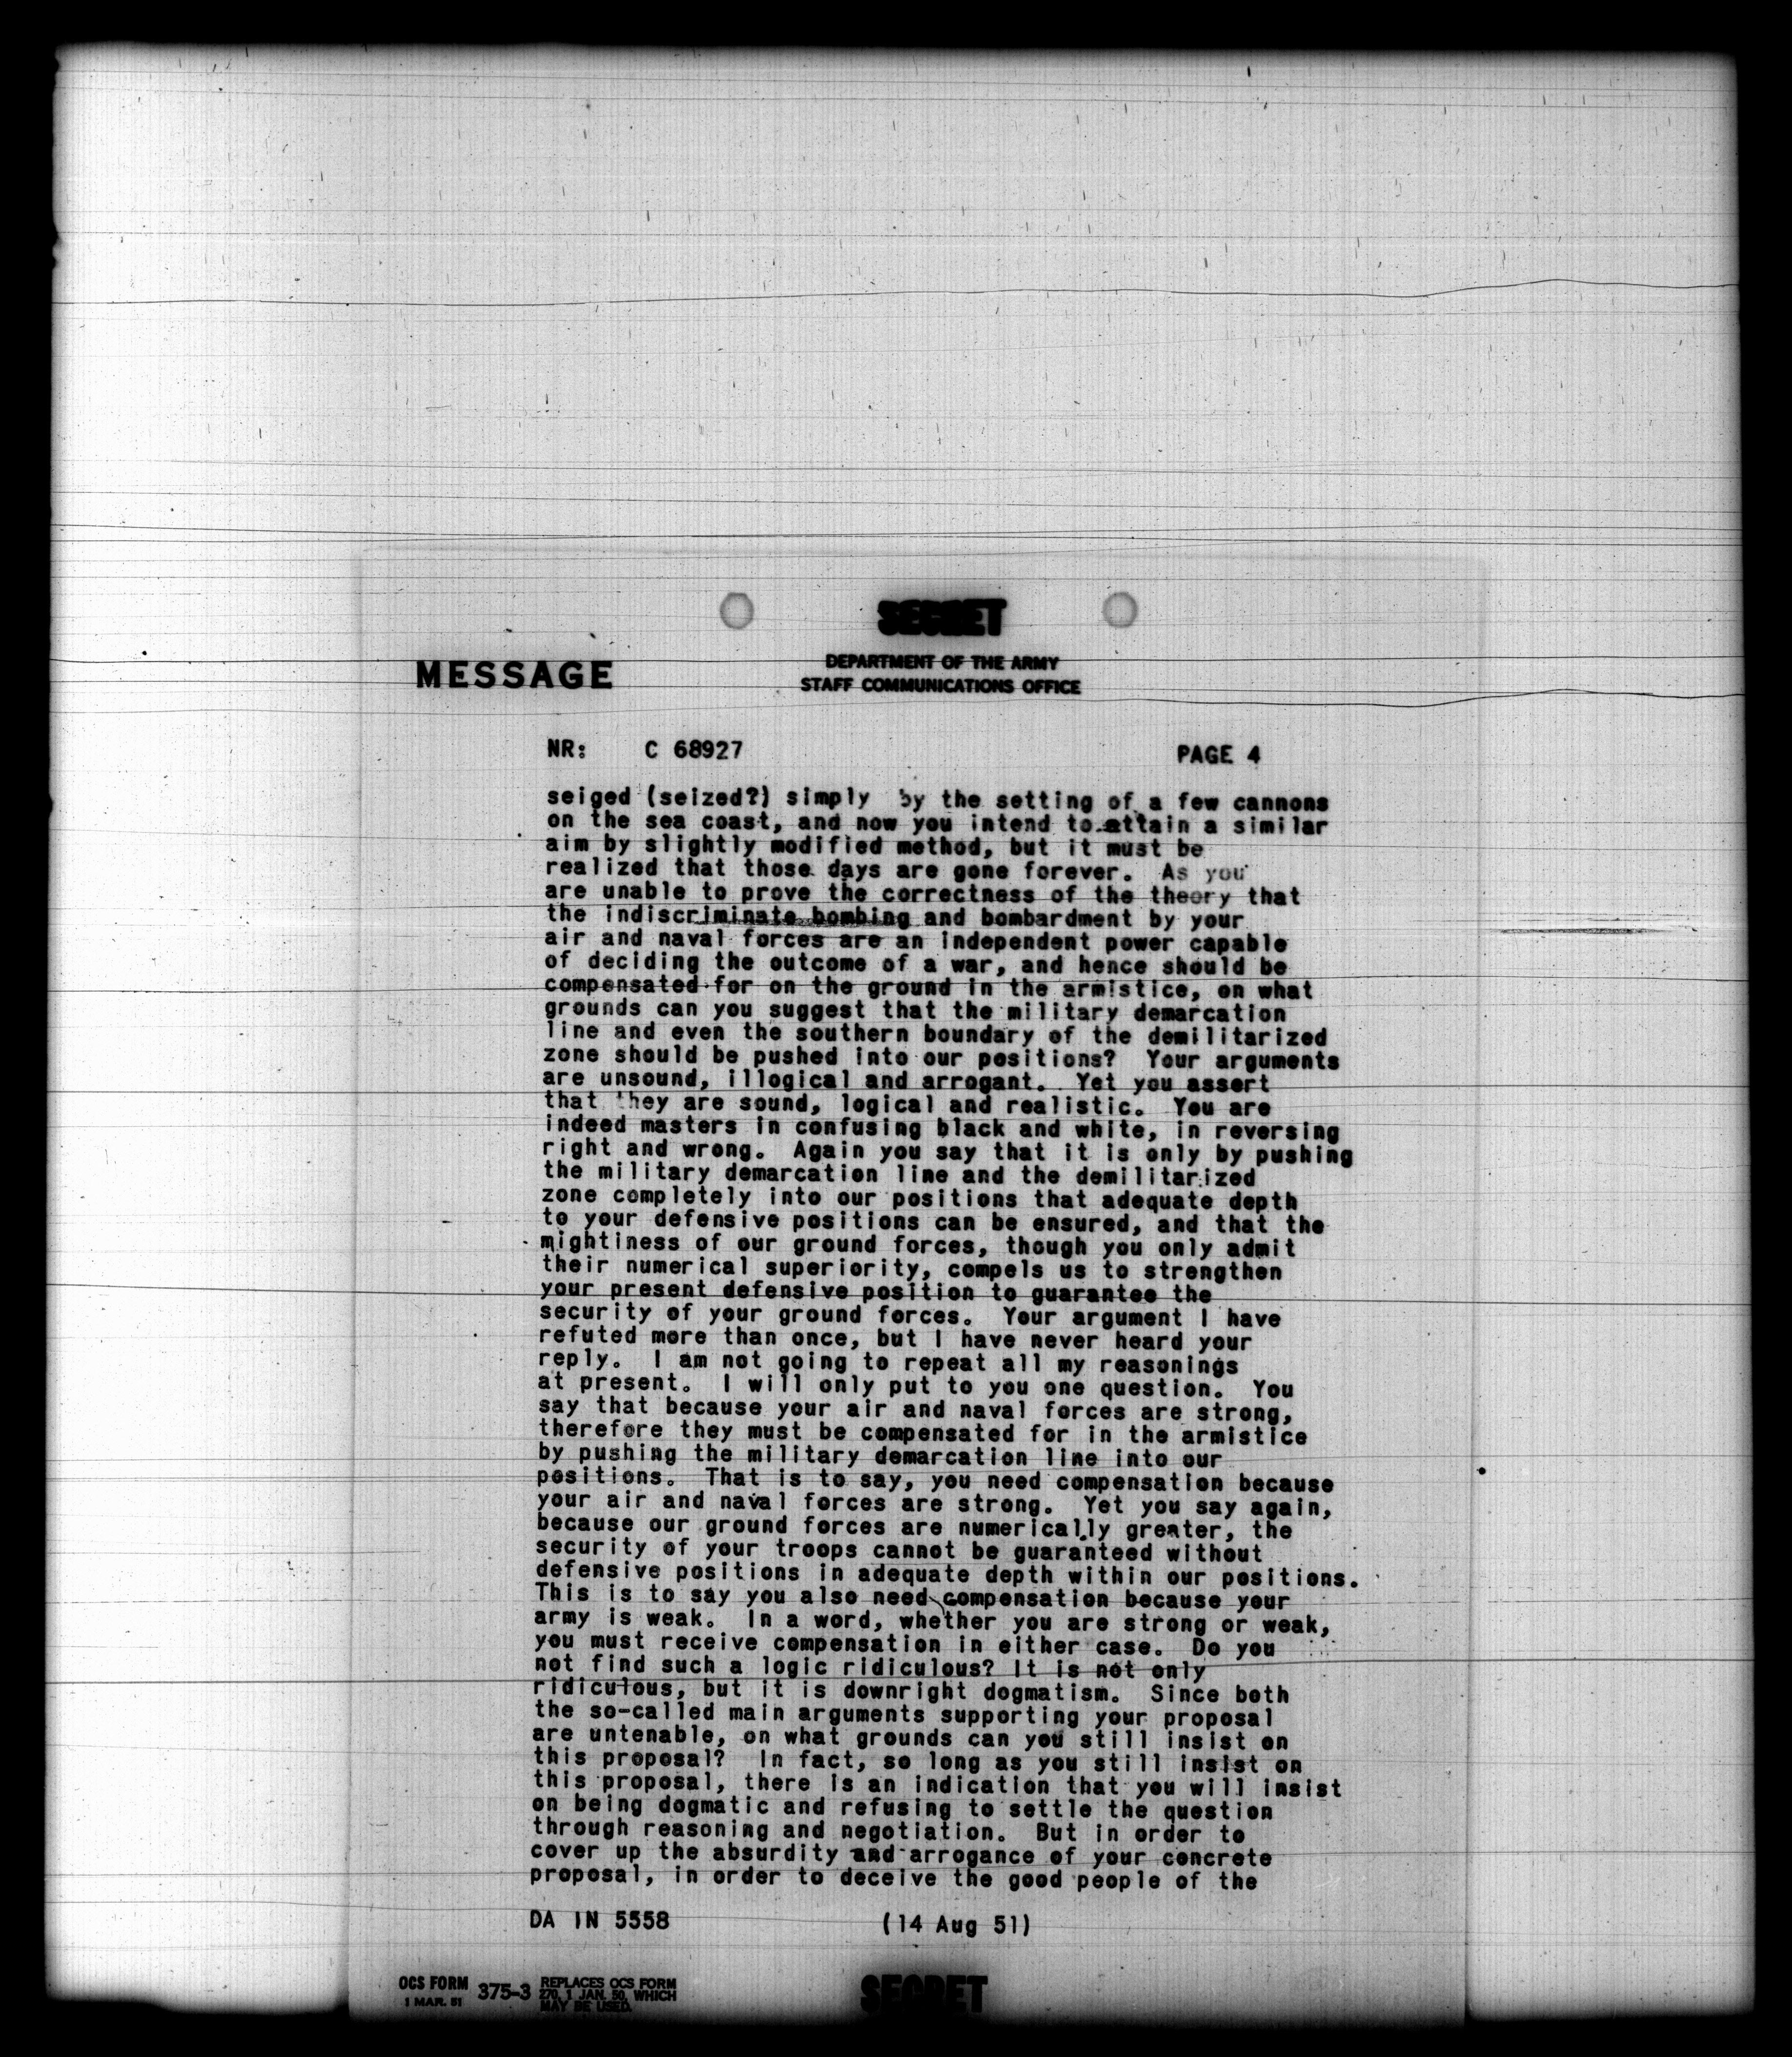 SECRET
MESSAGE
DEPARTMENT OF THE ARMY
STAFF COMMUNICATIONS OFFICE
NR: C 68927 PAGE 4
seiged (seized?) simply by the setting of a few cannons
on the sea coast, and now you intend to attain a similar
aim by slightly modified method, but it must be
realized that those days are gone forever. As you
are unable to prove the correctness of the theory that
the indiscriminate bombing and bombardment by your
air and naval forces are an independent power capable
of deciding the outcome of a war, and hence should be
compensated for on the ground in the armistice, on what
grounds can you suggest that the military demarcation
line and even the southern boundary of the demilitarized
zone should be pushed into our positions? Your arguments
are unsound, illogical and arrogant. Yet you assert
that they are sound, logical and realistic. You are
indeed masters in confusing black and white, in reversing
right and wrong. Again you say that it is only by pushing
the military demarcation line and the demilitarized
zone completely into our positions that adequate depth
to your defensive positions can be ensured, and that the
mightiness of our ground forces, though you only admit
their numerical superiority, compels us to strengthen
your present defensive position to guarantee the
security of your ground forces. Your argument I have
refuted more than once, but I have never heard your
reply. I am not going to repeat all my reasonings
at present. I will only put to you one question. You
say that because your air and naval forces are strong,
therefore they must be compensated for in the armistice
by pushing the military demarcation line into our
positions. That is to say, you need compensation because
your air and naval forces are strong. Yet you say again,
because our ground forces are numerically greater, the
security of your troops cannot be guaranteed without
defensive positions in adequate depth within our positions.
This is to say you also need compensation because your
army is weak. In a word, whether you are strong or weak,
you must receive compensation in either case. Do you
not find such a logic ridiculous? It is not only
ridiculous, but it is downright dogmatism. Since both
the so-called main arguments supporting your proposal
are untenable, on what grounds can you still insist on
this proposal? In fact, so long as you still insist on
this proposal, there is an indication that you will insist
on being dogmatic and refusing to settle the question
through reasoning and negotiation. But in order to
cover up the absurdity and arrogance of your concrete
proposal, in order to deceive the good people of the
DA IN 5558 (14 Aug 51)
OCS FORM 375-3 REPLACES OCS FORM
1 MAR. 51 270, 1 JAN. 50, WHICH
MAY BE USED.
SECRET